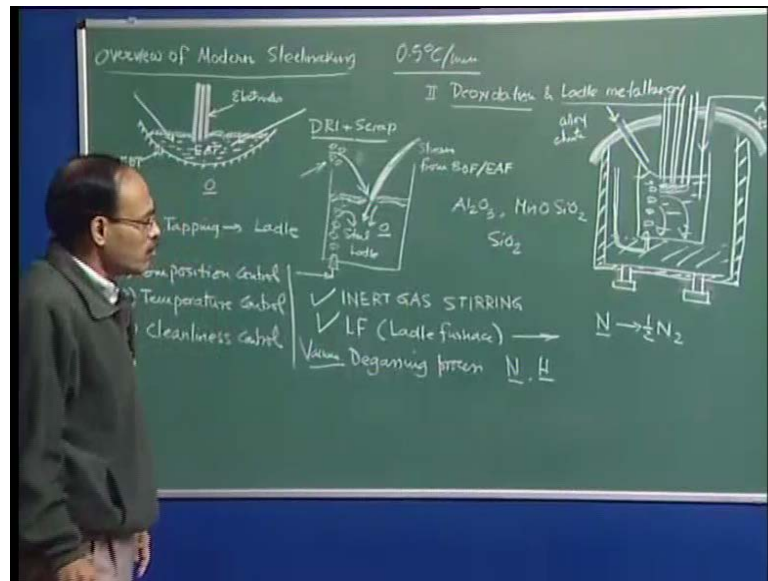 Overview of Modern Steelmaking
0.5°C/min
II Deoxidation & Ladle metallurgy
Electrodes
EAF
EBT
O
DRI + Scrap
Stream
from BOF/EAF
Steel O
Ladle
alloy
chute
Al₂O₃, MnO SiO₂
SiO₂
Tapping → Ladle
omposition control
Temperature control
Cleanliness control
✓ INERT GAS STIRRING
✓ LF (Ladle furnace) →
Vacuum Degassing process N, H
N → ½ N₂